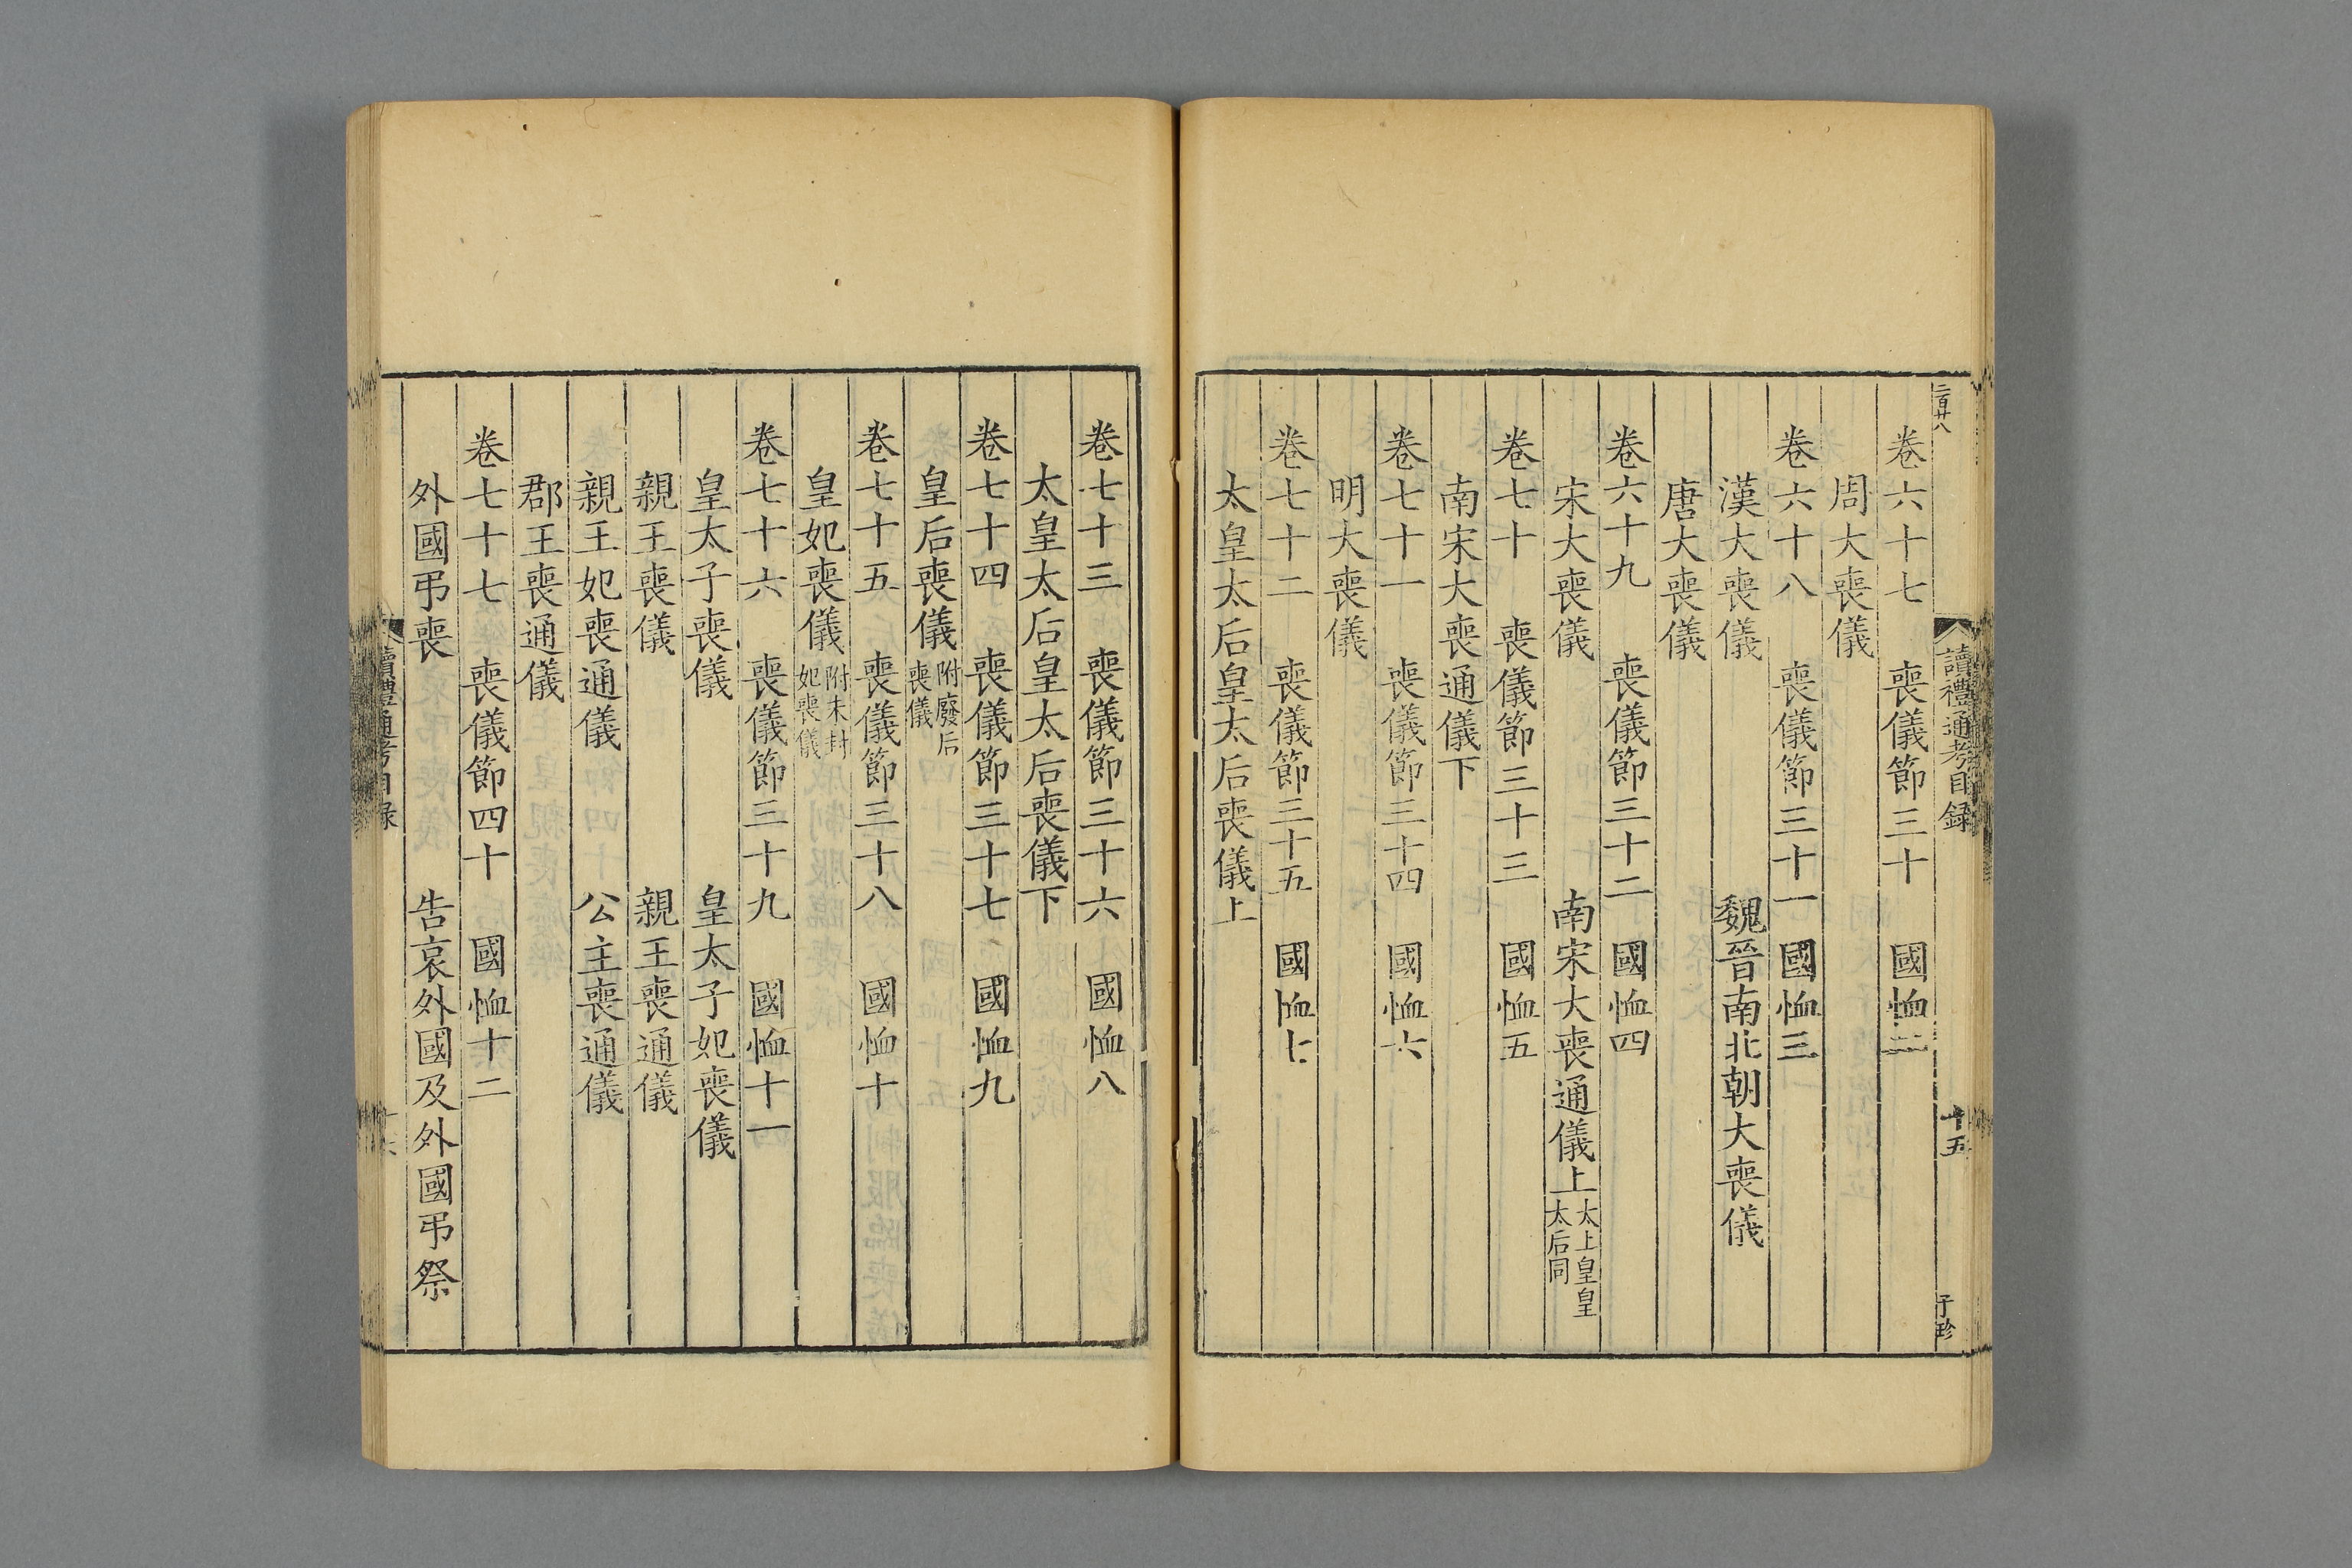 二百廿八
讀禮通考目録
十五
于珍
卷六十七 喪儀節三十 國恤二
周大喪儀
卷六十八 喪儀節三十一 國恤三
漢大喪儀 魏晉南北朝大喪儀
唐大喪儀
卷六十九 喪儀節三十二 國恤四
宋大喪儀 南宋大喪通儀上 太上皇皇
太后同
卷七十 喪儀節三十三 國恤五
南宋大喪通儀下
卷七十一 喪儀節三十四 國恤六
明大喪儀
卷七十二 喪儀節三十五 國恤七
太皇太后皇太后喪儀上
卷七十三 喪儀節三十六 國恤八
太皇太后皇太后喪儀下
卷七十四 喪儀節三十七 國恤九
皇后喪儀 附廢后
喪儀
卷七十五 喪儀節三十八 國恤十
皇妃喪儀 附未封
妃喪儀
卷七十六 喪儀節三十九 國恤十一
皇太子喪儀 皇太子妃喪儀
親王喪儀 親王喪通儀
親王妃喪通儀 公主喪通儀
郡王喪通儀
卷七十七 喪儀節四十 國恤十二
外國弔喪 告哀外國及外國弔祭
讀禮通考目録